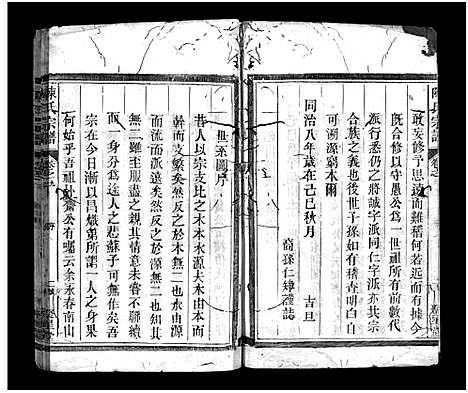 敢安修予思遠而難稽何若近而有據今
既合修以守愚公為一世祖所有前數代
派行悉仍之將誠字派同仁字派亦其宗
合族之義也後世子孫如有稽查明白自
可溯源窮本爾
同治八年歲在己巳秋月 吉旦
裔孫仁 謹誌
世系圖序
昔人以宗支比之木本水源夫木由本而
幹而支繁矣然反之於木無二也水由源
而流而派遠矣然反之於源無二也知其
無二雖至服盡之親其情意未嘗不聯續
而一身分為途人之悲蘇子可無作矣吾
宗在今日漸以昌熾第所謂一人之身果
何始乎吾祖 公有囑云余永春南山
陳氏宗譜
卷之
陳氏宗譜
卷之